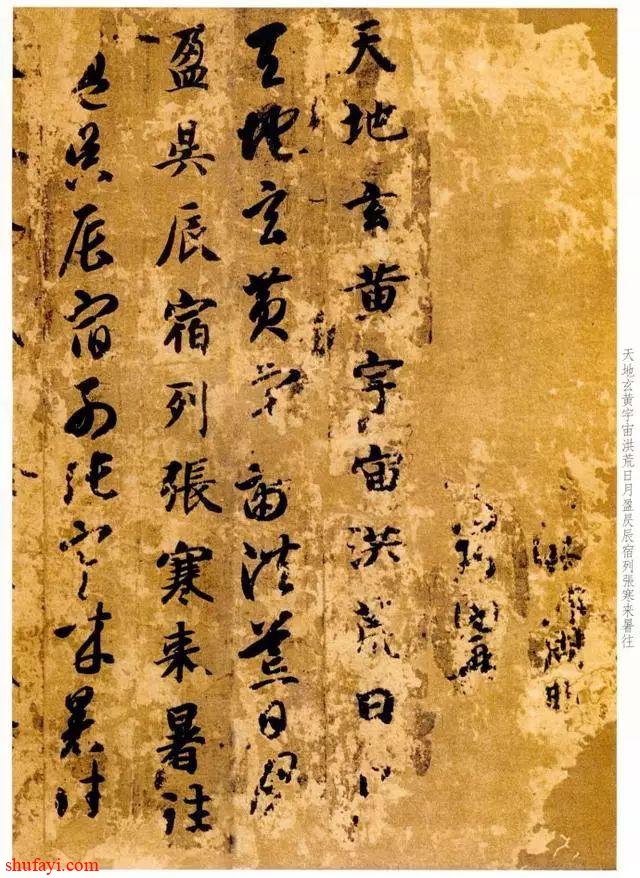 天地玄黄宇宙洪荒日月盈昃辰宿列張寒来暑往
天地玄黄宇宙洪荒日月
天地玄黄宇宙洪荒日月
盈昃辰宿列張寒来暑往
盈昃辰宿列張寒来暑往
shufayi.com